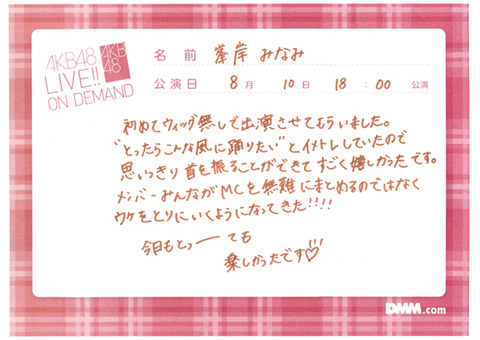 AKB48
LIVE!!
ON DEMAND
AKB
48
名 前 峯岸 みなみ
公演日 8月 10日 18:00 公演
初めてウィッグ無しで出演させてもらいました。
"とったらこんな風に踊りたい"とイメトレしていたので
思いっきり首を振ることができてすごく嬉しかったです。
メンバーみんながMCを無難にまとめるのではなく
ウケをとりにいくようになってきた!!!!
今日もとっーても
楽しかったです♡!!!
DMM.com